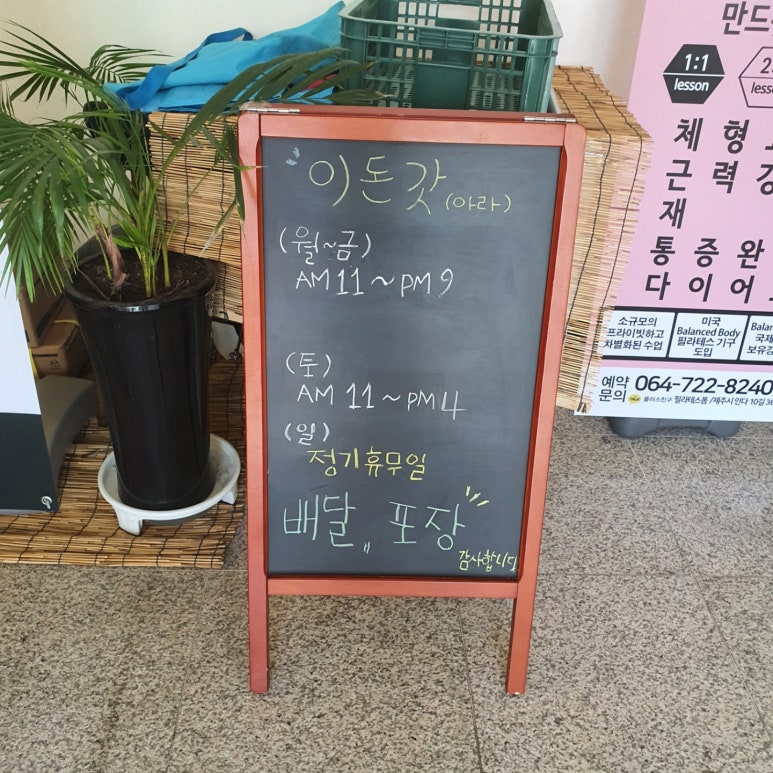 이돈갓 (아라)
(월~금)
AM 11 ~ PM 9
(토)
AM 11 ~ PM 4
(일)
정기휴무일
배달,, 포장
감사합니다
만드
1:1
lesson
lesso
체 형
근 력 강
재
통 증 완
다 이 어
소규모의
프라이빗하고
차별화된 수업
미국
Balanced Body
필라테스 기구
도입
Balan
국제
보유강
예약
문의
064-722-8240
플러스친구 필라테스폼 /제주시 인다 10길 36